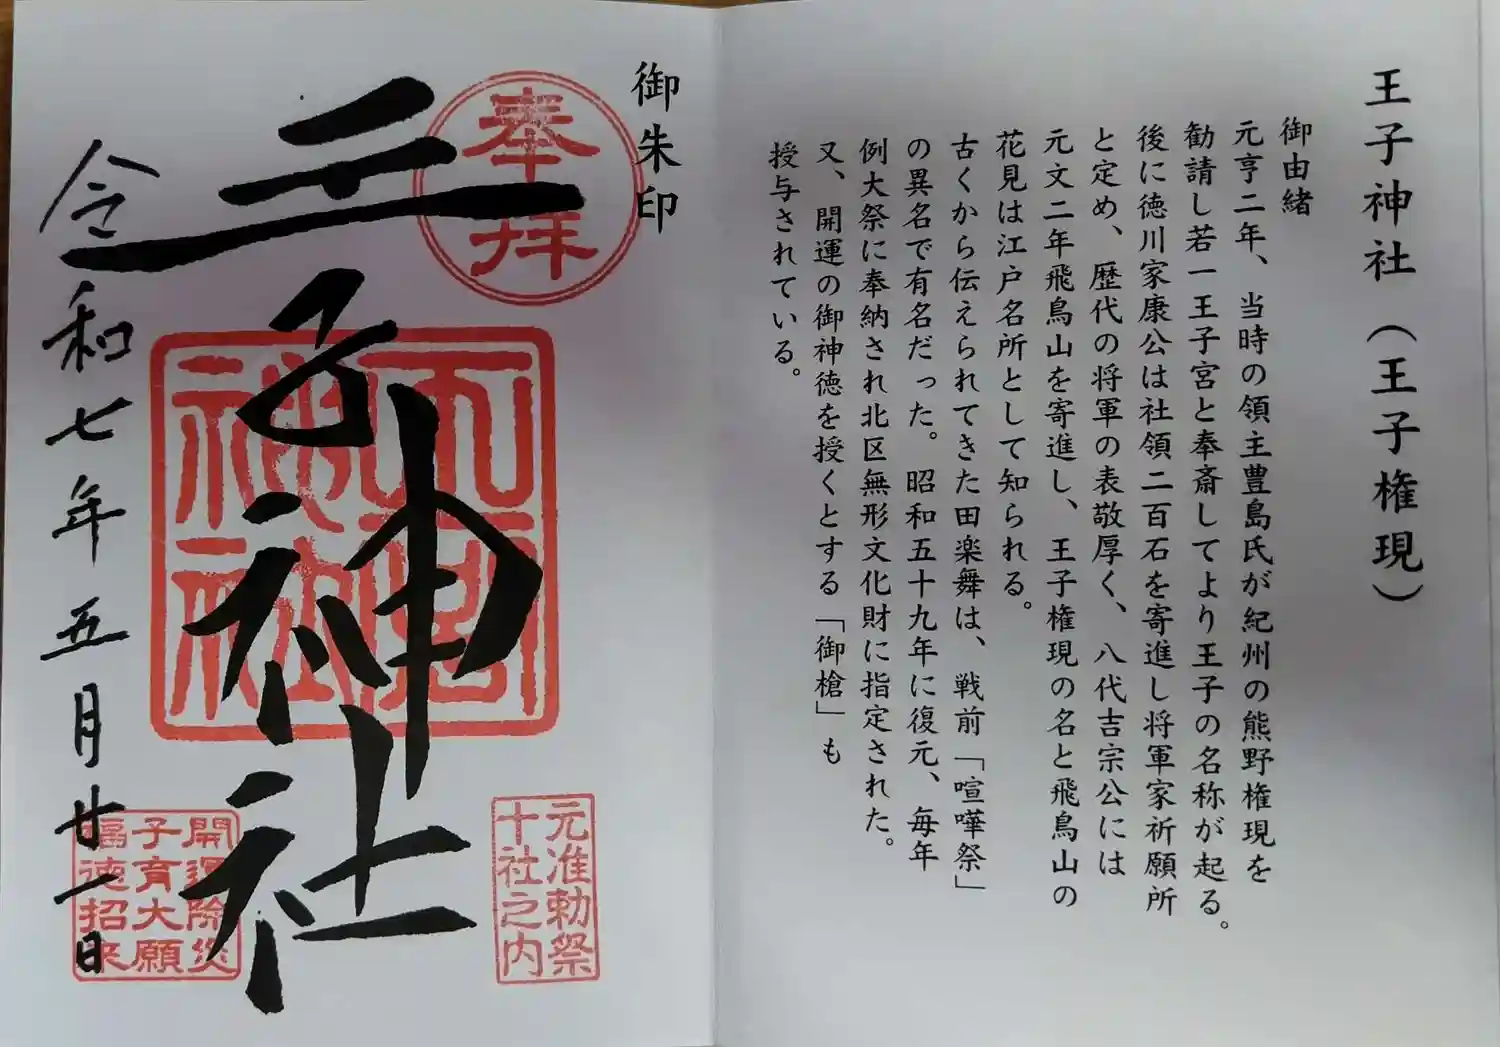 王子神社（王子権現）
御由緒
元亨二年、当時の領主豊島氏が紀州の熊野権現を
勧請し若一王子宮と奉斎してより王子の名称が起る。
後に徳川家康公は社領二百石を寄進し将軍家祈願所
と定め、歴代の将軍の表敬厚く、八代吉宗公には
元文二年飛鳥山を寄進し、王子権現の名と飛鳥山の
花見は江戸名所として知られる。
古くから伝えられてきた田楽舞は、戦前「喧嘩祭」
の異名で有名だった。昭和五十九年に復元、毎年
例大祭に奉納され北区無形文化財に指定された。
又、開運の御神徳を授くとする「御槍」も
授与されている。
御朱印
奉拝
王子神社
令和七年五月廿一日
元准勅祭
十社之内
開運除災
子育大願
福徳招来